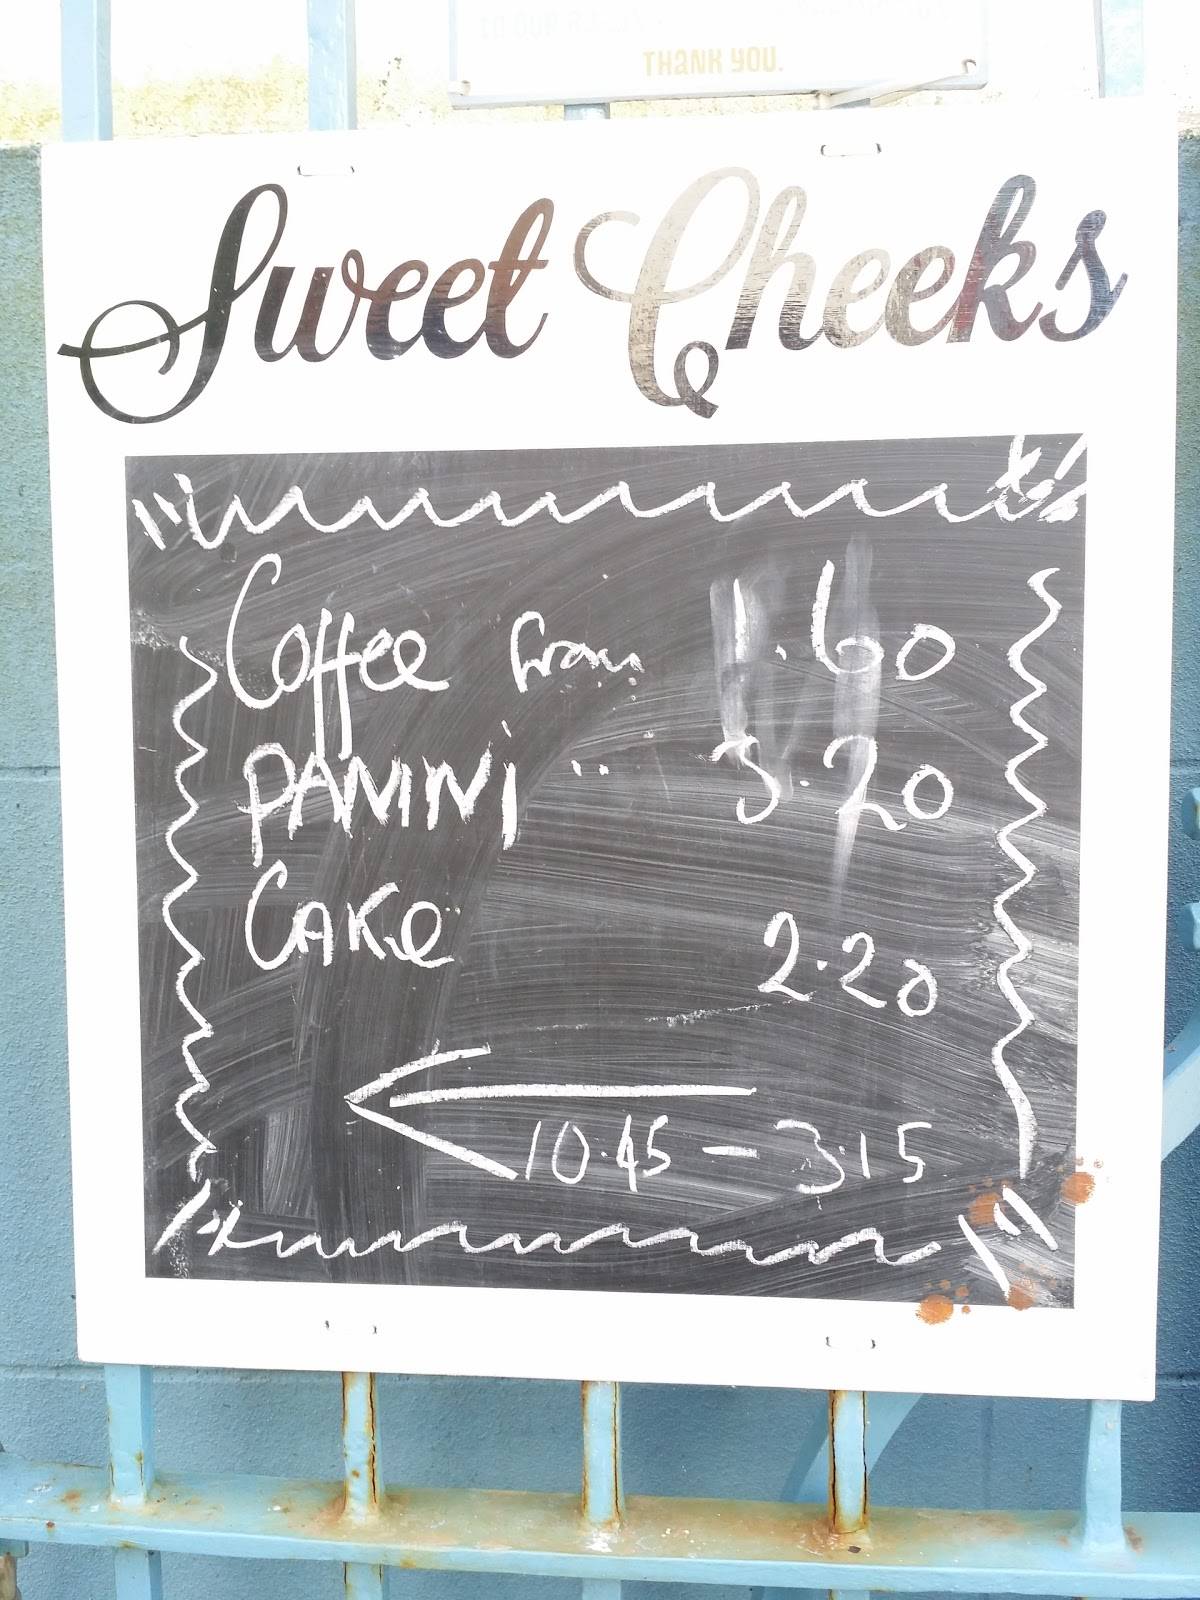 THANK YOU.
Sweet Cheeks
Coffee from 1.60
PANINI 3.20
CAKe 2.20
10.45 - 3.15